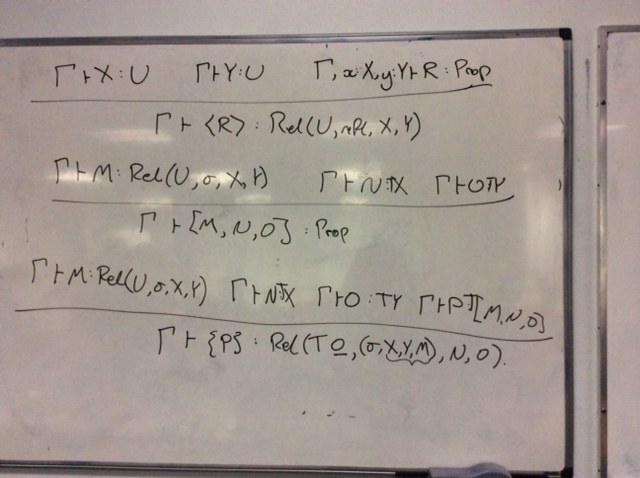 Γ ⊢ X : U Γ ⊢ Y : U Γ, x:X, y:Y ⊢ R : Prop
Γ ⊢ ⟨R⟩ : Rel(U, refl, X, Y)
Γ ⊢ M : Rel(U, σ, X, Y) Γ ⊢ N : TX Γ ⊢ O : TY
Γ ⊢ [M, N, O] : Prop
Γ ⊢ M : Rel(U, σ, X, Y) Γ ⊢ N : TX Γ ⊢ O : TY Γ ⊢ P : T[M, N, O]
Γ ⊢ {P} : Rel(T 0, (σ, X, Y, M), N, O).